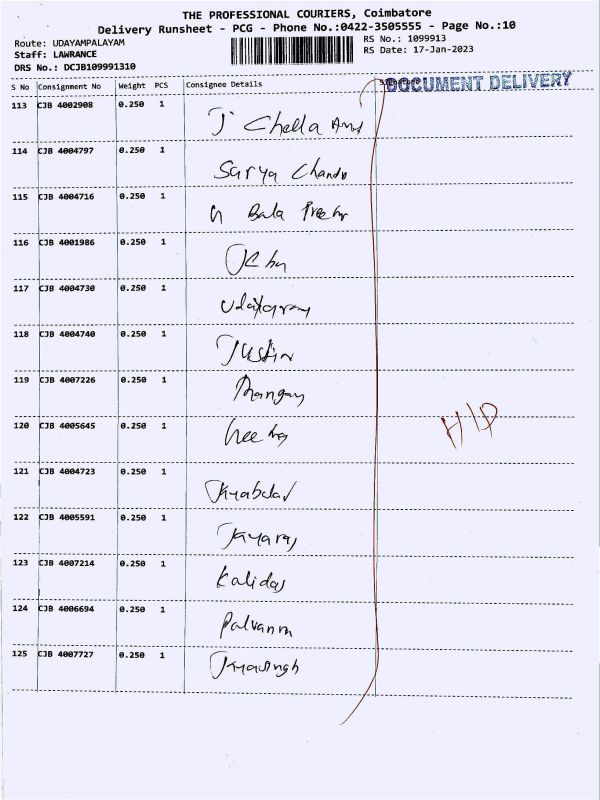 THE PROFESSIONAL COURIERS, Coimbatore
Delivery Runsheet - PCG - Phone No.:0422-3505555 - Page No.:10
Route: UDAYAMPALAYAM
RS No.: 1099913
Staff: LAWRANCE
RS Date: 17-Jan-2023
DRS No.: DCJB109991310
S No Consignment No Weight PCS Consignee Details Signature
DOCUMENT DELIVERY
113 CJB 4002908 0.250 1
J Chella
114 CJB 4004797 0.250 1
Surya Chandr
115 CJB 4004716 0.250 1
Bala
116 CJB 4001986 0.250 1
117 CJB 4004730 0.250 1
118 CJB 4004740 0.250 1
Justin
119 CJB 4007226 0.250 1
120 CJB 4005645 0.250 1
121 CJB 4004723 0.250 1
122 CJB 4005591 0.250 1
Jayaraj
123 CJB 4007214 0.250 1
Kalidas
124 CJB 4006694 0.250 1
125 CJB 4007727 0.250 1